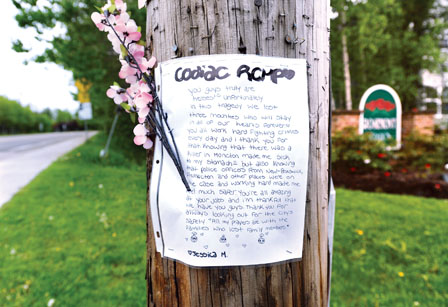 Codiac RCMP
you guys truly are
heroes unfortunately
in this tragedy we lost
three mounties who will stay
in all of our hearts forever
You all work hard fighting crimes
every day and I thank you for
that. Knowing that there was a
killer in Moncton made me sick
to my stomach but also knowing
that police officers from New Brunswick,
Edmonton and other places were on
the case and working hard made me
feel much safer you're all amazing
at your jobs and I'm thankful that
we have you guys. Thank you for
always looking out for the city's
safety "All my prayers be with the
families who lost family members"
Jessica M.